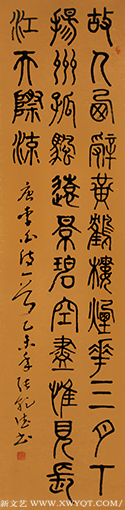 故人西辭黃鶴樓煙華三月下
揚州孤颿遠景碧空盡惟見長
江天際流
唐李白诗一首乙未年张书
新文艺 — WWW.XWYQT.COM—